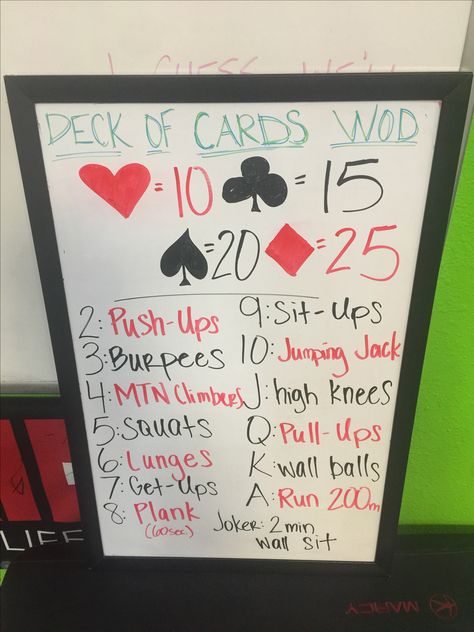 I CHESS WE'LL
DECK OF CARDS WOD
♥ = 10 ♣ = 15
♠ = 20 ♦ = 25
2: Push-Ups
3: Burpees
4: MTN Climbers
5: Squats
6: Lunges
7: Get-Ups
8: Plank
(60sec)
9: Sit-Ups
10: Jumping Jack
J: high knees
Q: Pull-Ups
K: wall balls
A: Run 200m
Joker: 2 min
wall sit
LIFE